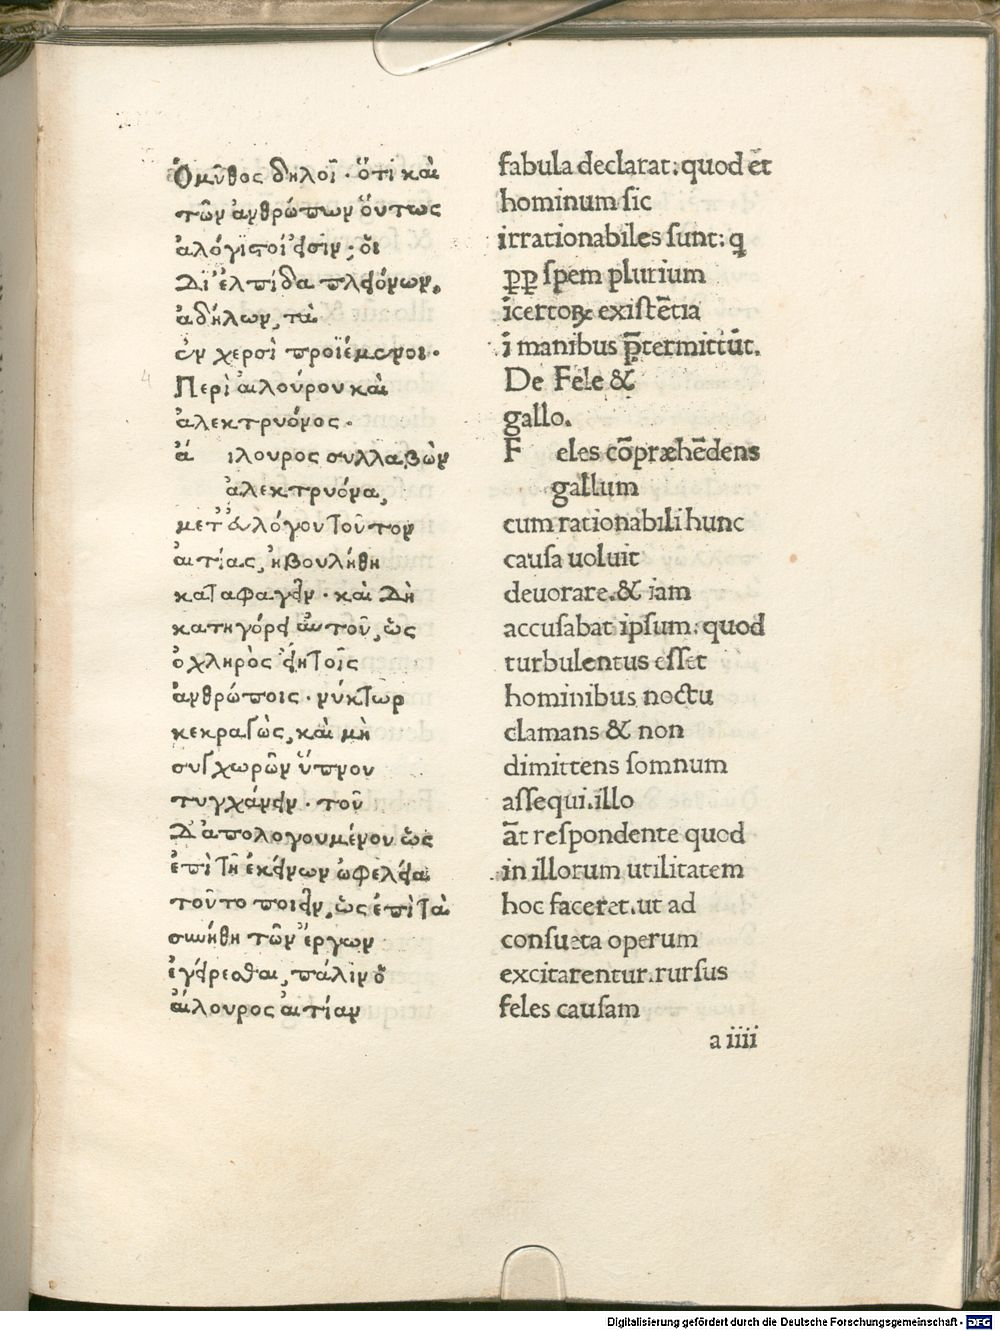 Ὁ μῦθος δηλοῖ · ὅτι καὶ
τῶν ἀνθρώπων ὅυτως
ἀλόγιστοί εἰσιν ; ὅι
Δι' ἐλπίδα πλειόνων,
ἀδήλων, τὰ
ἐν χερσὶ προϊέμενοι ·
Περὶ ἀιλούρου καὶ
ἀλεκτρυόνος ·
ἄ ιλουρος συλλαβὼν
ἀλεκτρυόνα,
μετ' ἐυλόγου τοῦτον
ἀιτίας, ἠβουλήθη
καταφαγεῖν · καὶ Δὴ
κατηγόρει ἀυτοῦ, ὡς
ὀχληρὸς εἴη τοῖς
ἀνθρώποις · νύκτωρ
κεκραγὼς, καὶ μὴ
συγχωρῶν ὕπνου
τυγχάνειν · τοῦ
Δ' ἀπολογουμένου ὡς
ἐπὶ τῆ ἐκείνων ὠφελείᾳ
τοῦτο ποιεῖν, ὡς ἐπὶ τὰ
συνήθη τῶν ἔργων
ἐγείρεσθαι, πάλιν ὁ
ἀίλουρος ἀιτίαν
fabula declarat: quod et
hominum sic
irrationabiles sunt: q
ꝓꝓ spem plurium
ĩcertoꝝ existẽtia
ĩ manibus p̃termittũt.
De Fele &
gallo.
F eles cõpræhẽdens
gallum
cum rationabili hunc
causa uoluit
deuorare. & iam
accusabat ipsum: quod
turbulentus esset
hominibus noctu
clamans & non
dimittens somnum
assequi. illo
ãt respondente quod
in illorum utilitatem
hoc faceret. ut ad
consueta operum
excitarentur. rursus
feles causam
a iiii
Digitalisierung gefördert durch die Deutsche Forschungsgemeinschaft - DFG